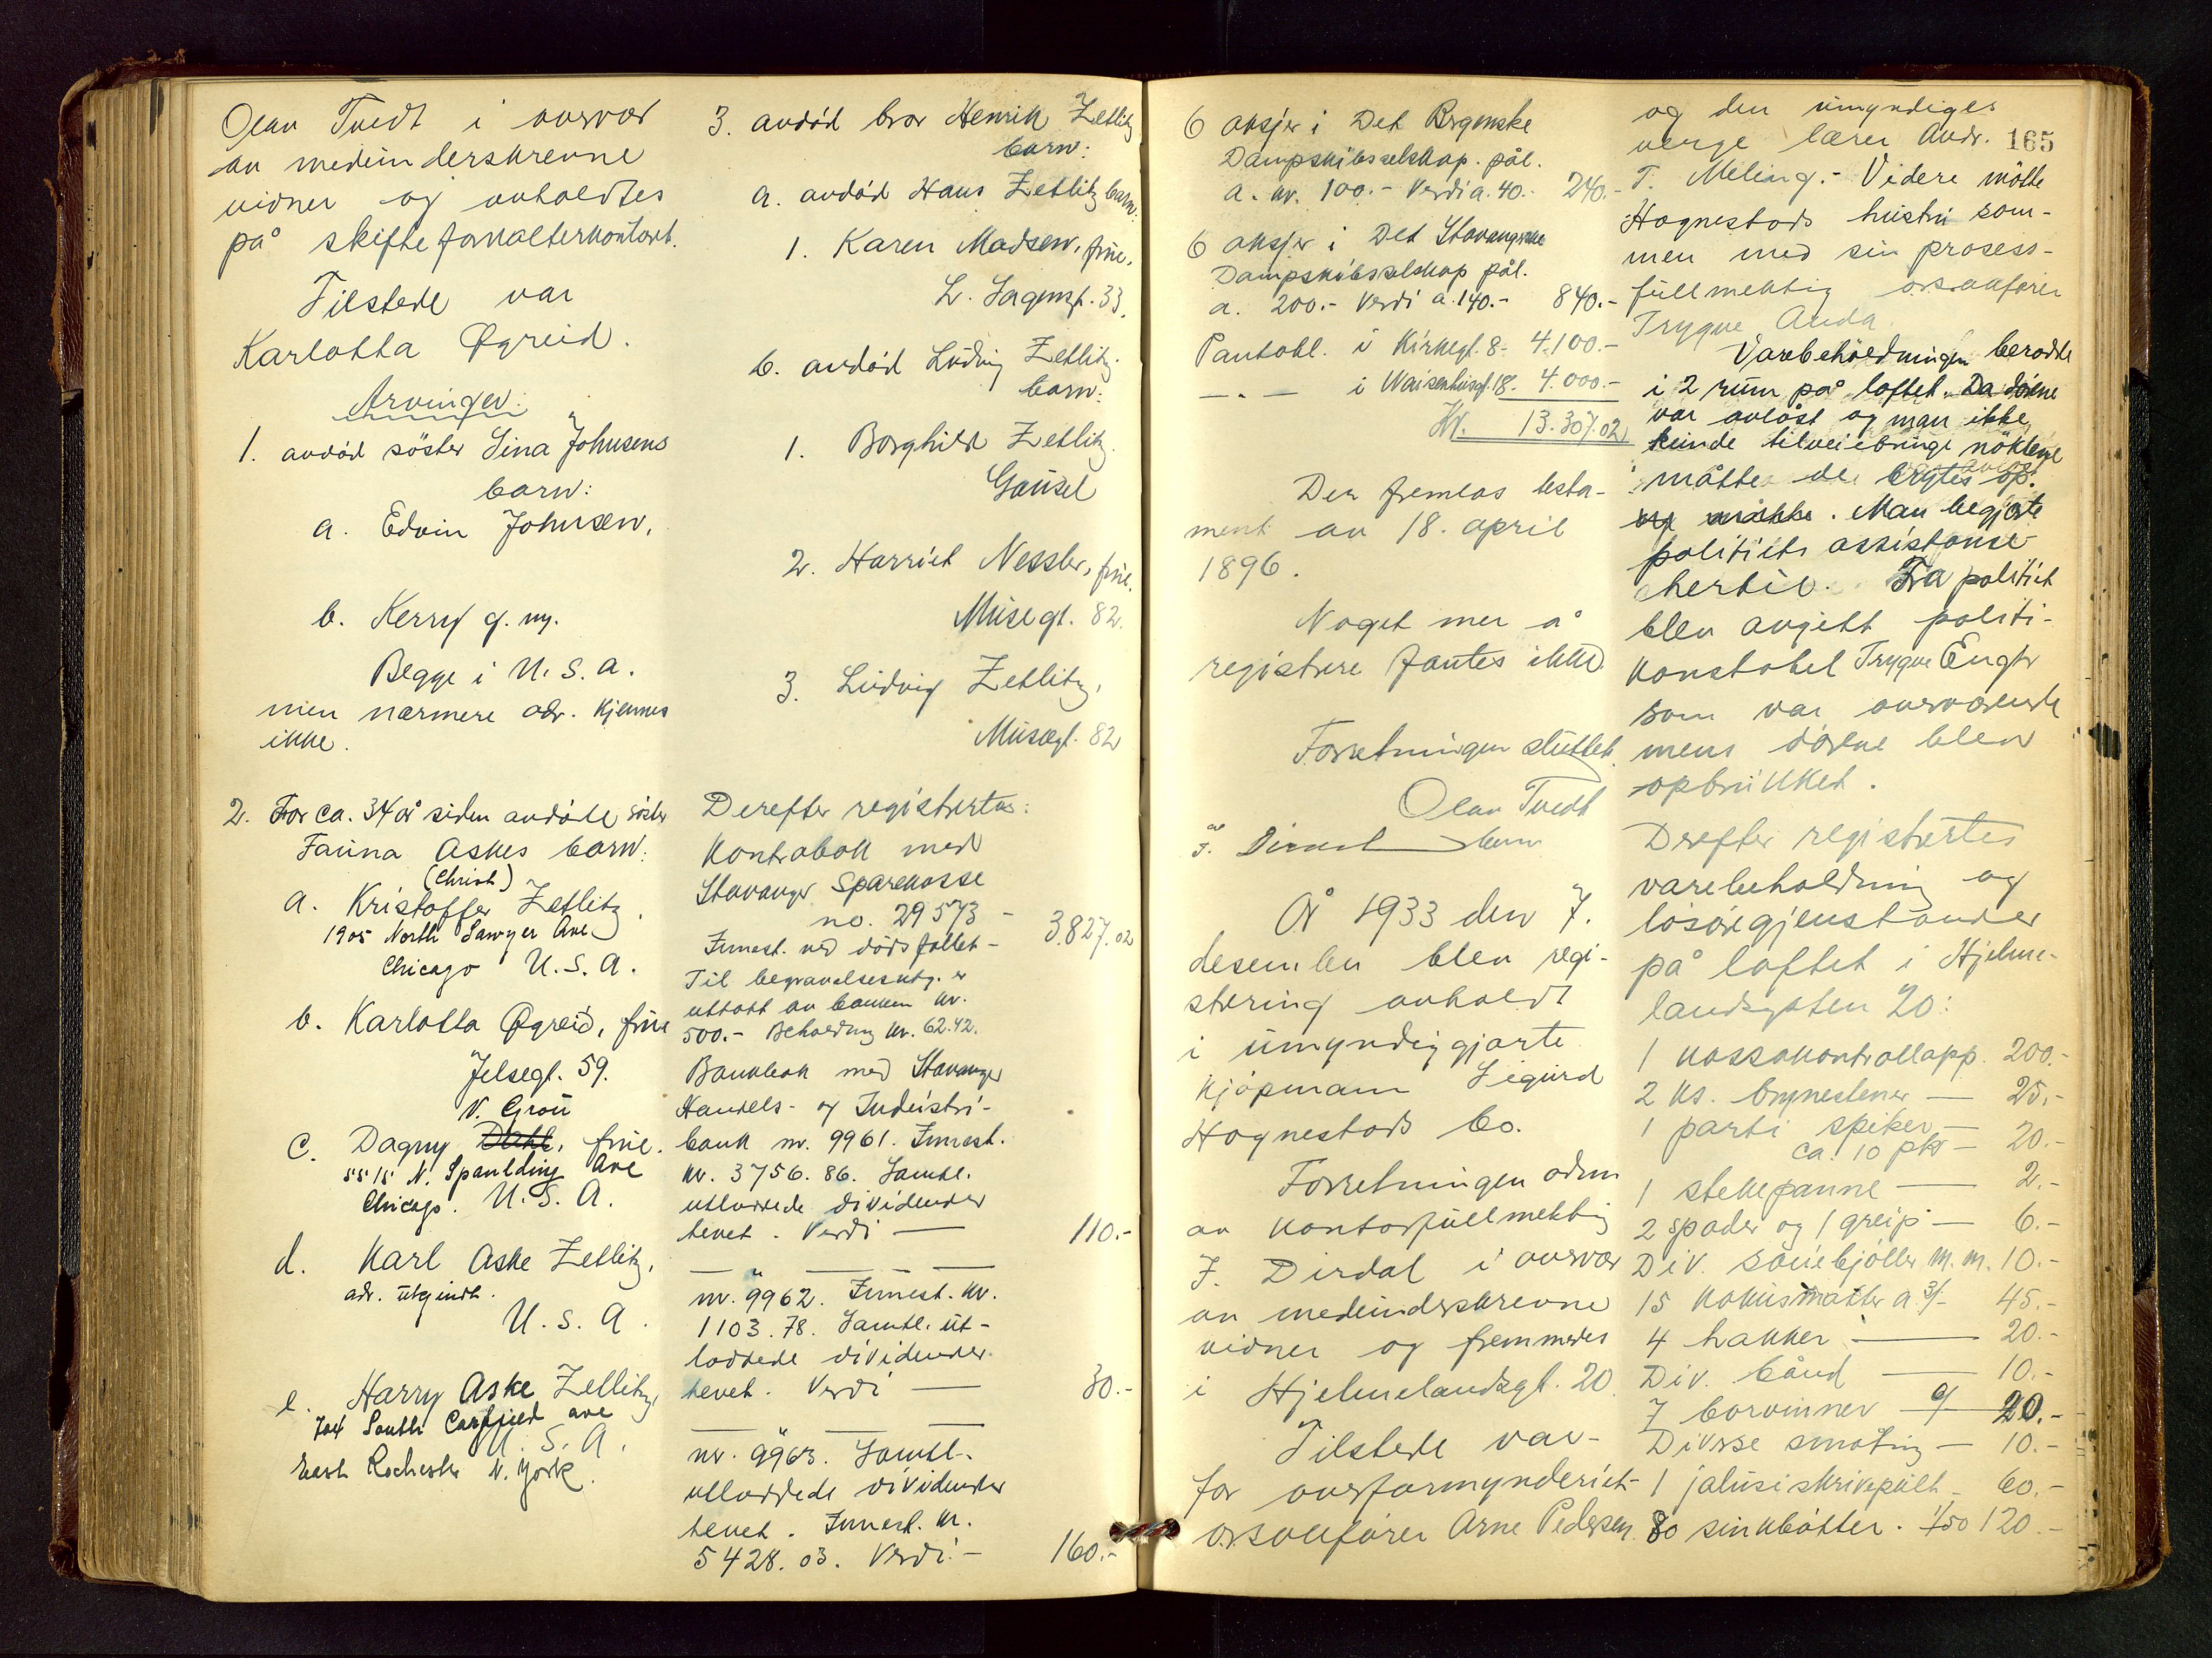 Olav Tvedt i overvær
av medunderskrevne
vidner og avholdtes
på skifteforvalterkontoret.
Tilstede var
Karlotta Øgreid.
Arvinger:
1. avdød søster Lina Johnsens
barn:
a. Edvin Johnsen,
b. Kerry g. m.
Begge i U.S.A.
men nærmere adr. kjennes
ikke.
2. For ca. 34 år siden avdøde søster
Fauna Askes barn:
(Christ)
a. Kristoffer Zetlitz,
1905 North Sawyer Ave
Chicago U.S.A.
b. Karlotta Øgreid, frue
Jelsegt. 59.
V. Grou
c. Dagny Dahl, frue.
5515 N. Spaulding Ave
Chicago. U.S.A.
d. Karl Aske Zetlitz,
adr. utgindt.
U.S.A.
e. Harry Aske Zetlitz,
704 South Garfield ave
U.S.A.
East Rochester N. York.
3. avdød bror Henrik Zetlitz
barn:
a. avdød Hans Zetlitz barn:
1. Karen Madsen, frue.
L. Sagmgt. 33.
b. avdød Ludvig Zetlitz
barn:
1. Borghild Zetlitz
Gausel
2. Harriet Nessler, frue.
Musegt. 82.
3. Ludvig Zetlitz,
Musegt. 82
Derefter registrertes:
Kontrabok med
Stavanger Sparekasse
no. 29573 -
Innest. ved dødsfallet - 3.827.02
Til begravelsesutg. er
uttatt av banken kr.
500.- Beholdning kr. 62.42.
Bankbok med Stavanger
Handels- og Industri-
bank nr. 9961. Innest.
kr. 3756.86. Samtl.
utloddede dividender
hevet. Verdi — 110.-
— " — —
nr. 9962. Innest. kr.
1103.78. Samtl. ut-
loddede dividender
hevet. Verdi — 30.-
— " —
nr. 9963. Samtl.
utloddede dividender
hevet. Innest. kr.
5428.03. Verdi - 160.-
6 aksjer i Det Bergenske
Dampskibsselskap. pål.
a. kr. 100.- Verdi a. 40.- 240.-
6 aksjer i Det Stavangerske
Dampskibsselskap pål.
a. 200.- Verdi a. 140.- 840.-
Pantobl. i Kirkegt. 8- 4.100.-
— " — i Waisenhusgt. 18. 4.000.-
Kr. 13.307.02
Der fremlas testa-
ment av 18. april
1896.
Noget mer å
registrere fantes ikke
Forretningen sluttet.
Olav Tvedt
År 1933 den 7.
desember blev regi-
strering avholdt
i umyndiggjorte
kjøpmann Sigurd
Hognestads bo.
Forretningen adm.
av kontorfullmektig
J. Dirdal i overvær
av medunderskrevne
vidner og fremmedes
i Hjelmelandsgt. 20.
Tilstede var
for overformynderiet
o.r.sakfører Arne Pedersen
165
og den umyndiges
verge lærer Andr.
T. Meling.- Videre møtte
Hognestads hustru som-
men med sin prosess-
fullmektig o.r.sakfører
Trygve Anda.
Varebeholdningen berodde
i 2 rum på loftet. Da dørene
var avlåst og man ikke
kunde tilveiebringe nøklene
måtte de brytes op.
Man begjærte
politiets assistanse
hertil. Fra politiet
blev avgitt politi-
konstabel Trygve Enger
som var overværende
mens dørene blev
opbrukket.
Derefter registrertes
varebeholdning og
løsøregjenstander
på loftet i Hjelme-
landsgaten 20:
1 kassakontrollapp. 200.-
2 ks. brynestener — 25.-
1 parti spiker —
ca. 10 pk — 20.-
1 stekepanne — 2.-
2 spader og 1 greip — 6.-
Div. sauebjøller m.m. 10.-
15 kokusmatter a 3/- 45.-
4 hakker — 20.-
Div. bånd — 10.-
7 borvinner — 20.-
Diverse småting — 10.-
1 jalusiskrivepult - 60.-
80 sinkbøtter. 1/50 120.-